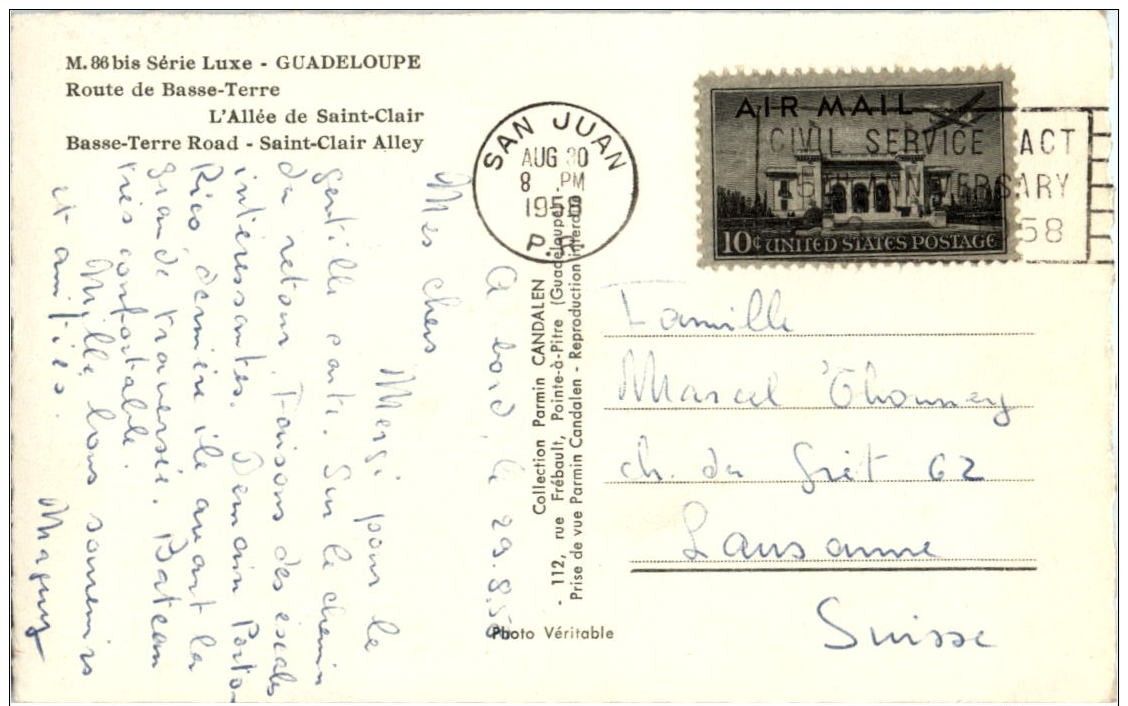 M.86bis Série Luxe - GUADELOUPE
Route de Basse-Terre
L'Allée de Saint-Clair
Basse-Terre Road - Saint-Clair Alley
SAN JUAN
AUG 30
8 PM
1958
P.R.
AIR MAIL
10¢ UNITED STATES POSTAGE
CIVIL SERVICE ACT
75TH ANNIVERSARY
58
Collection Parmin CANDALEN
- 112, rue Frébault, Pointe-à-Pitre (Guadeloupe) -
Prise de vue Parmin Candalen - Reproduction interdite
Photo Véritable
A bord, le 29.8.58
Mes chers
Merci pour la
gentille carte. Sur le chemin
du retour. Faisons des escales
intéressantes. Demain Porto-
Rico dernière île avant la
grande traversée. Bateau
très confortable.
Mille bons souvenirs
et amitiés.
Famille
Marcel
ch. du 62
Lausanne
Suisse